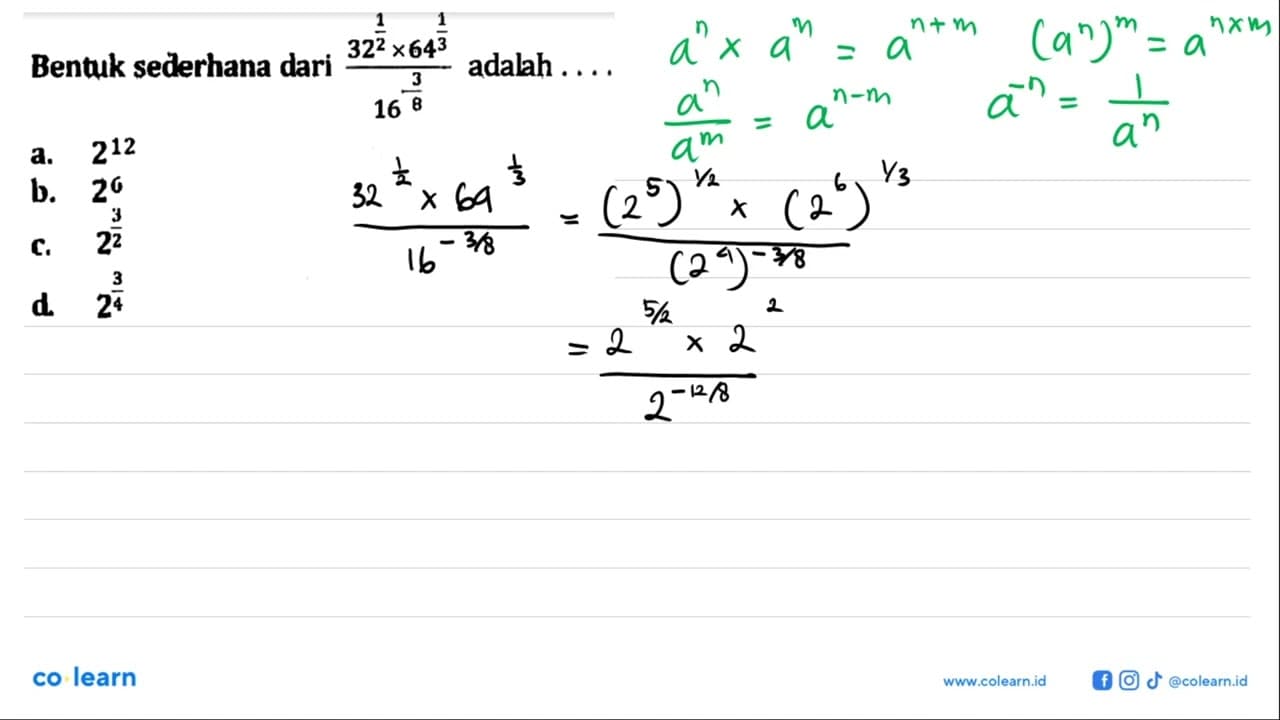 Bentuk sederhana dari \frac{32^{\frac{1}{2}} \times 64^{\frac{1}{3}}}{16^{-\frac{3}{8}}} adalah . . . .
a. 2^{12}
b. 2^{6}
c. 2^{\frac{3}{2}}
d. 2^{\frac{3}{4}}
a^n × a^m = a^{n+m} (a^n)^m = a^{n×m}
\frac{a^n}{a^m} = a^{n-m} a^{-n} = \frac{1}{a^n}
\frac{32^{\frac{1}{2}} × 64^{\frac{1}{3}}}{16^{-3/8}} = \frac{(2^5)^{1/2} × (2^6)^{1/3}}{(2^4)^{-3/8}}
= \frac{2^{5/2} × 2^2}{2^{-12/8}}
co·learn
www.colearn.id @colearn.id